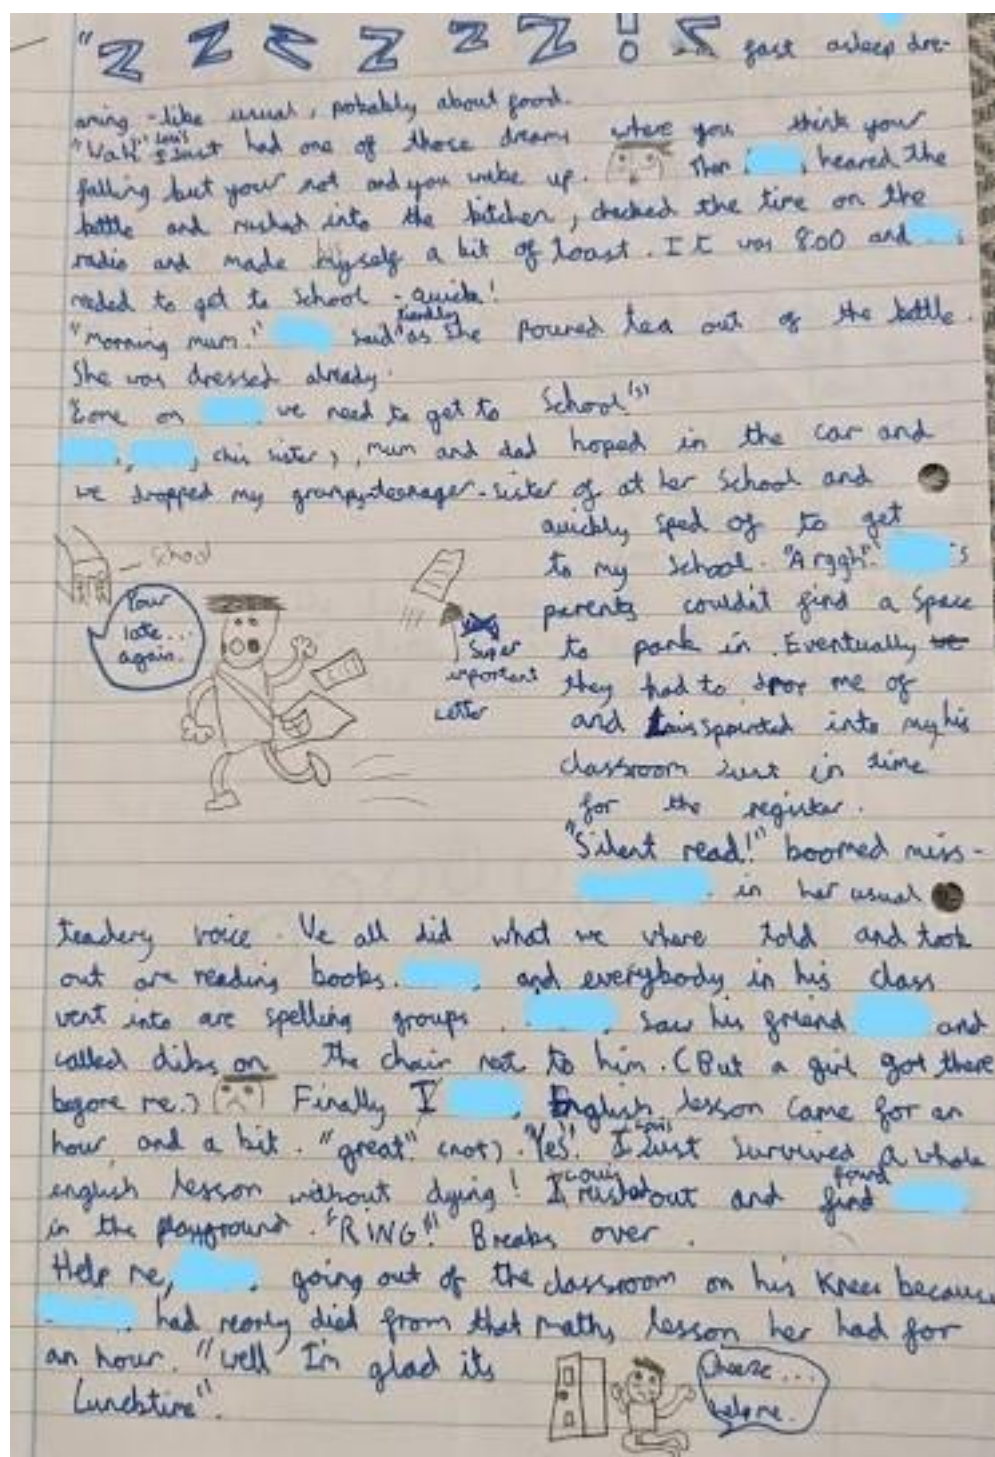 "Z Z Z Z Z Z ! Z fast asleep dre-
aming - like usual, probably about food.
"Wah" Louis I Just had one of those dreams where you think your
falling but your not and you wake up. Then heared the
kettle and rushed into the kitchen, checked the time on the
radio and made myself a bit of toast. It was 8:00 and
needed to get to School - quick!
"Morning mum." said as she poured tea out of the kettle.
She was dressed already.
"Come on we need to get to School!"
, (his sister), mum and dad hoped in the car and
we dropped my grumpy-teenager-sister of at her School and
quickly sped of to get
to my School. "Arggh". 's
parents couldn't find a Space
to park in. Eventually we
they had to drop me of
and Louis sprinted into my his
classroom Just in time
for the register.
School
Your
late...
again.
Super
important
Letter
"Silent read!" boomed miss-
in her usual
teachery voice. We all did what we where told and took
out are reading books. and everybody in his class
went into are spelling groups. saw his friend and
called dibs on the chair next to him. (But a girl got there
before me.) Finally I English lesson came for an
hour and a bit. "great". (not). "Yes!" Louis I Just Survived a whole
english lesson without dying! I Louis rushed out and find found
in the playground. "RING!" Breaks over.
Help me, going out of the classroom on his knees because
had nearly died from that maths lesson her had for
an hour. "Well I'm glad its
Lunchtime".
Cheeze...
help me.